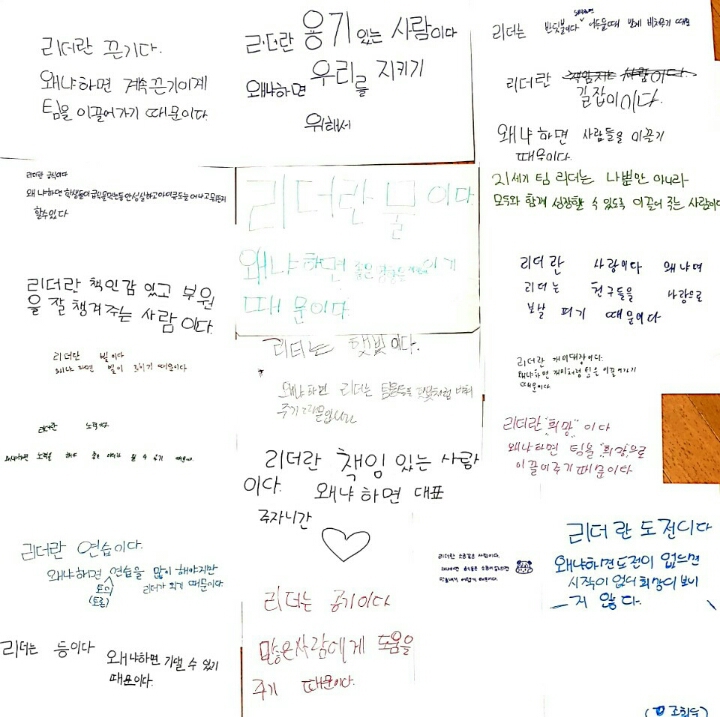 리더란 끈기다.
왜냐하면 계속 끈기이게
팀을 이끌어가기 때문이다.
리더란 용기 있는 사람이다
왜냐하면 우리를 지키기
위해서
리더는 반딧불이다 어두울때 밝게 비춰주기 때문
리더란 길잡이이다.
왜냐하면 사람들을 이끌기
때문이다.
리더란
할수있다
리더란 물이다.
왜냐하면
때문이다
21세기 팀 리더는 나뿐만 아니라
모두와 함께 성장할 수 있도록 이끌어 주는 사람이다
리더란 책임감 있고 부원
을 잘 챙겨주는 사람이다.
리더란 사랑이다 왜냐면
리더는 친구들을 사랑으로
보살피기 때문이다
리더란 빛이다
빛이 때문이다
리더는 햇빛이다.
왜냐하면 리더는 팀원들을 햇빛처럼 비춰
주기 때문입니다
리더란
왜냐하면 팀을 이끌어가기
때문이다
리더란 노력이다
왜냐하면 노력을 해야 수 있기 때문이다
리더란 책임 있는 사람
이다. 왜냐하면 대표
주자니간
리더란 "희망"이다
왜냐하면 팀을 "희망"으로
이끌어주기 때문이다
리더란 연습이다.
왜냐하면 연습을 많이 해야지만
리더가 되기 때문이다
토의
(토론)
리더는 공기이다
많은사람에게 도움을
주기 때문이다.
리더란
리더란 도전이다
왜냐하면 도전이 없으면
시작이 없더 희망이 보이
지 않다.
리더는 등이다
왜냐하면 기댈 수 있기
때문이다.